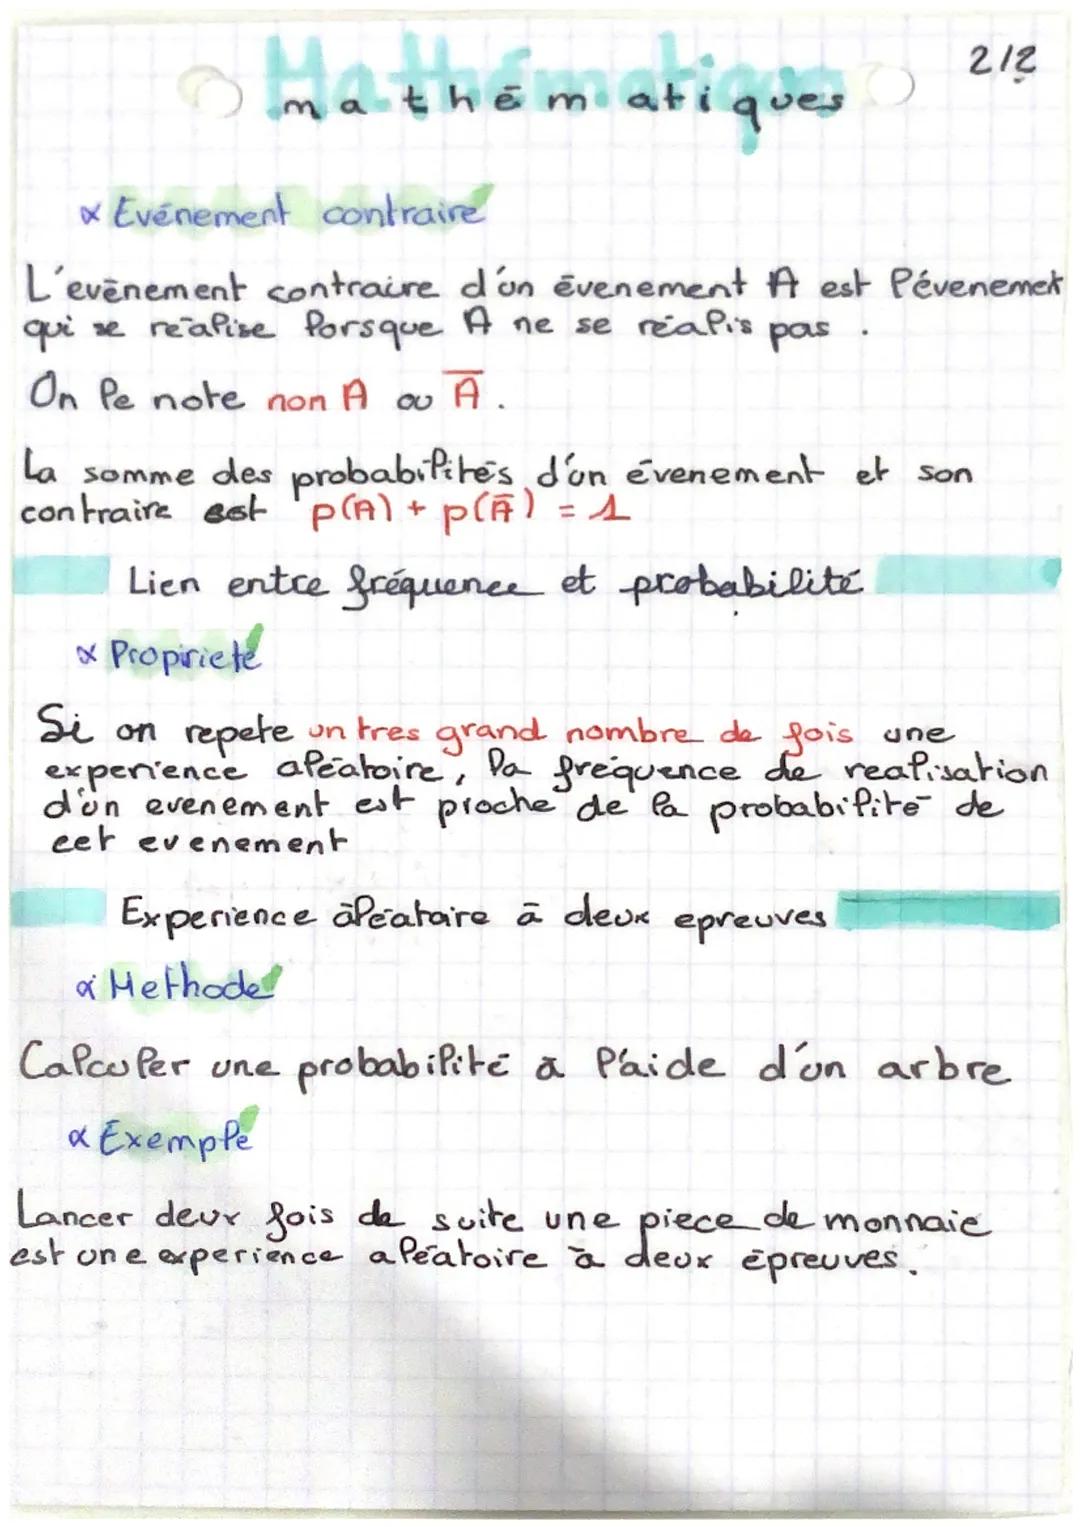 Mathématiques
mathématiques
2/2
× Evénement contraire
L'evènement contraire d'un évenement A est l'évenemet
qui se réalise lorsque A ne se réalis pas .
On le note non A ou A̅.
La somme des probabilités d'un évenement et son
contraire est p(A) + p(A̅) = 1
Lien entre fréquence et probabilité
× Propirieté
Si on repete un tres grand nombre de fois une
experience aléatoire, la fréquence de realisation
d'un evenement est proche de la probabilité de
cet evenement
Experience àléataire à deux epreuves
× Methode
Calculer une probabilité à l'aide d'un arbre
× Exemple
Lancer deux fois de suite une piece de monnaie
est une experience aléatoire à deux épreuves.